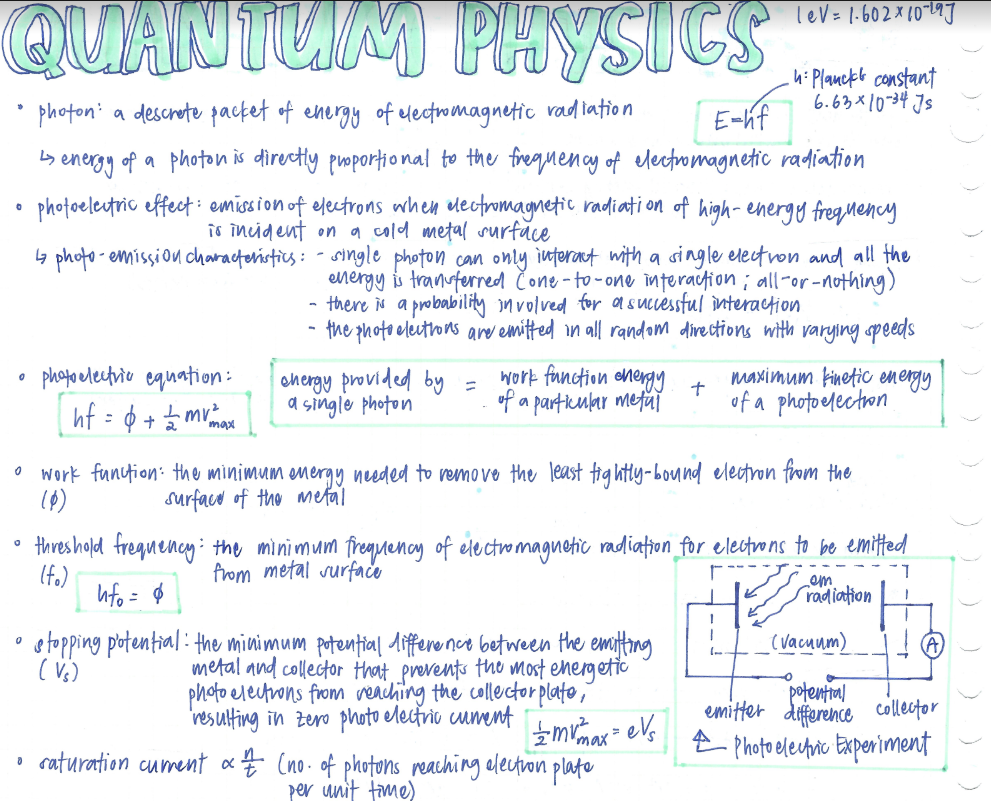 QUANTUM PHYSICS
1 eV = 1.602 × 10⁻¹⁹ J
h: Planck's constant
6.63 × 10⁻³⁴ Js
• photon: a discrete packet of energy of electromagnetic radiation
E = hf
↳ energy of a photon is directly proportional to the frequency of electromagnetic radiation
• photoelectric effect: emission of electrons when electromagnetic radiation of high-energy frequency
is incident on a cold metal surface
↳ photo-emission characteristics: - single photon can only interact with a single electron and all the
energy is transferred (one-to-one interaction; all-or-nothing)
- there is a probability involved for a successful interaction
- the photoelectrons are emitted in all random directions with varying speeds
• photoelectric equation:
hf = ϕ + ½ mv²max
energy provided by a single photon = work function energy of a particular metal + maximum kinetic energy of a photoelectron
• work function: the minimum energy needed to remove the least tightly-bound electron from the
(ϕ) surface of the metal
• threshold frequency: the minimum frequency of electromagnetic radiation for electrons to be emitted
(f₀) from metal surface
hf₀ = ϕ
• stopping potential: the minimum potential difference between the emitting
(Vs) metal and collector that prevents the most energetic
photoelectrons from reaching the collector plate,
resulting in zero photoelectric current
½mv²max = eVs
em
radiation
(vacuum)
A
emitter
potential
difference
collector
Photoelectric Experiment
• saturation current ∝ n/t (no. of photons reaching electron plate
per unit time)